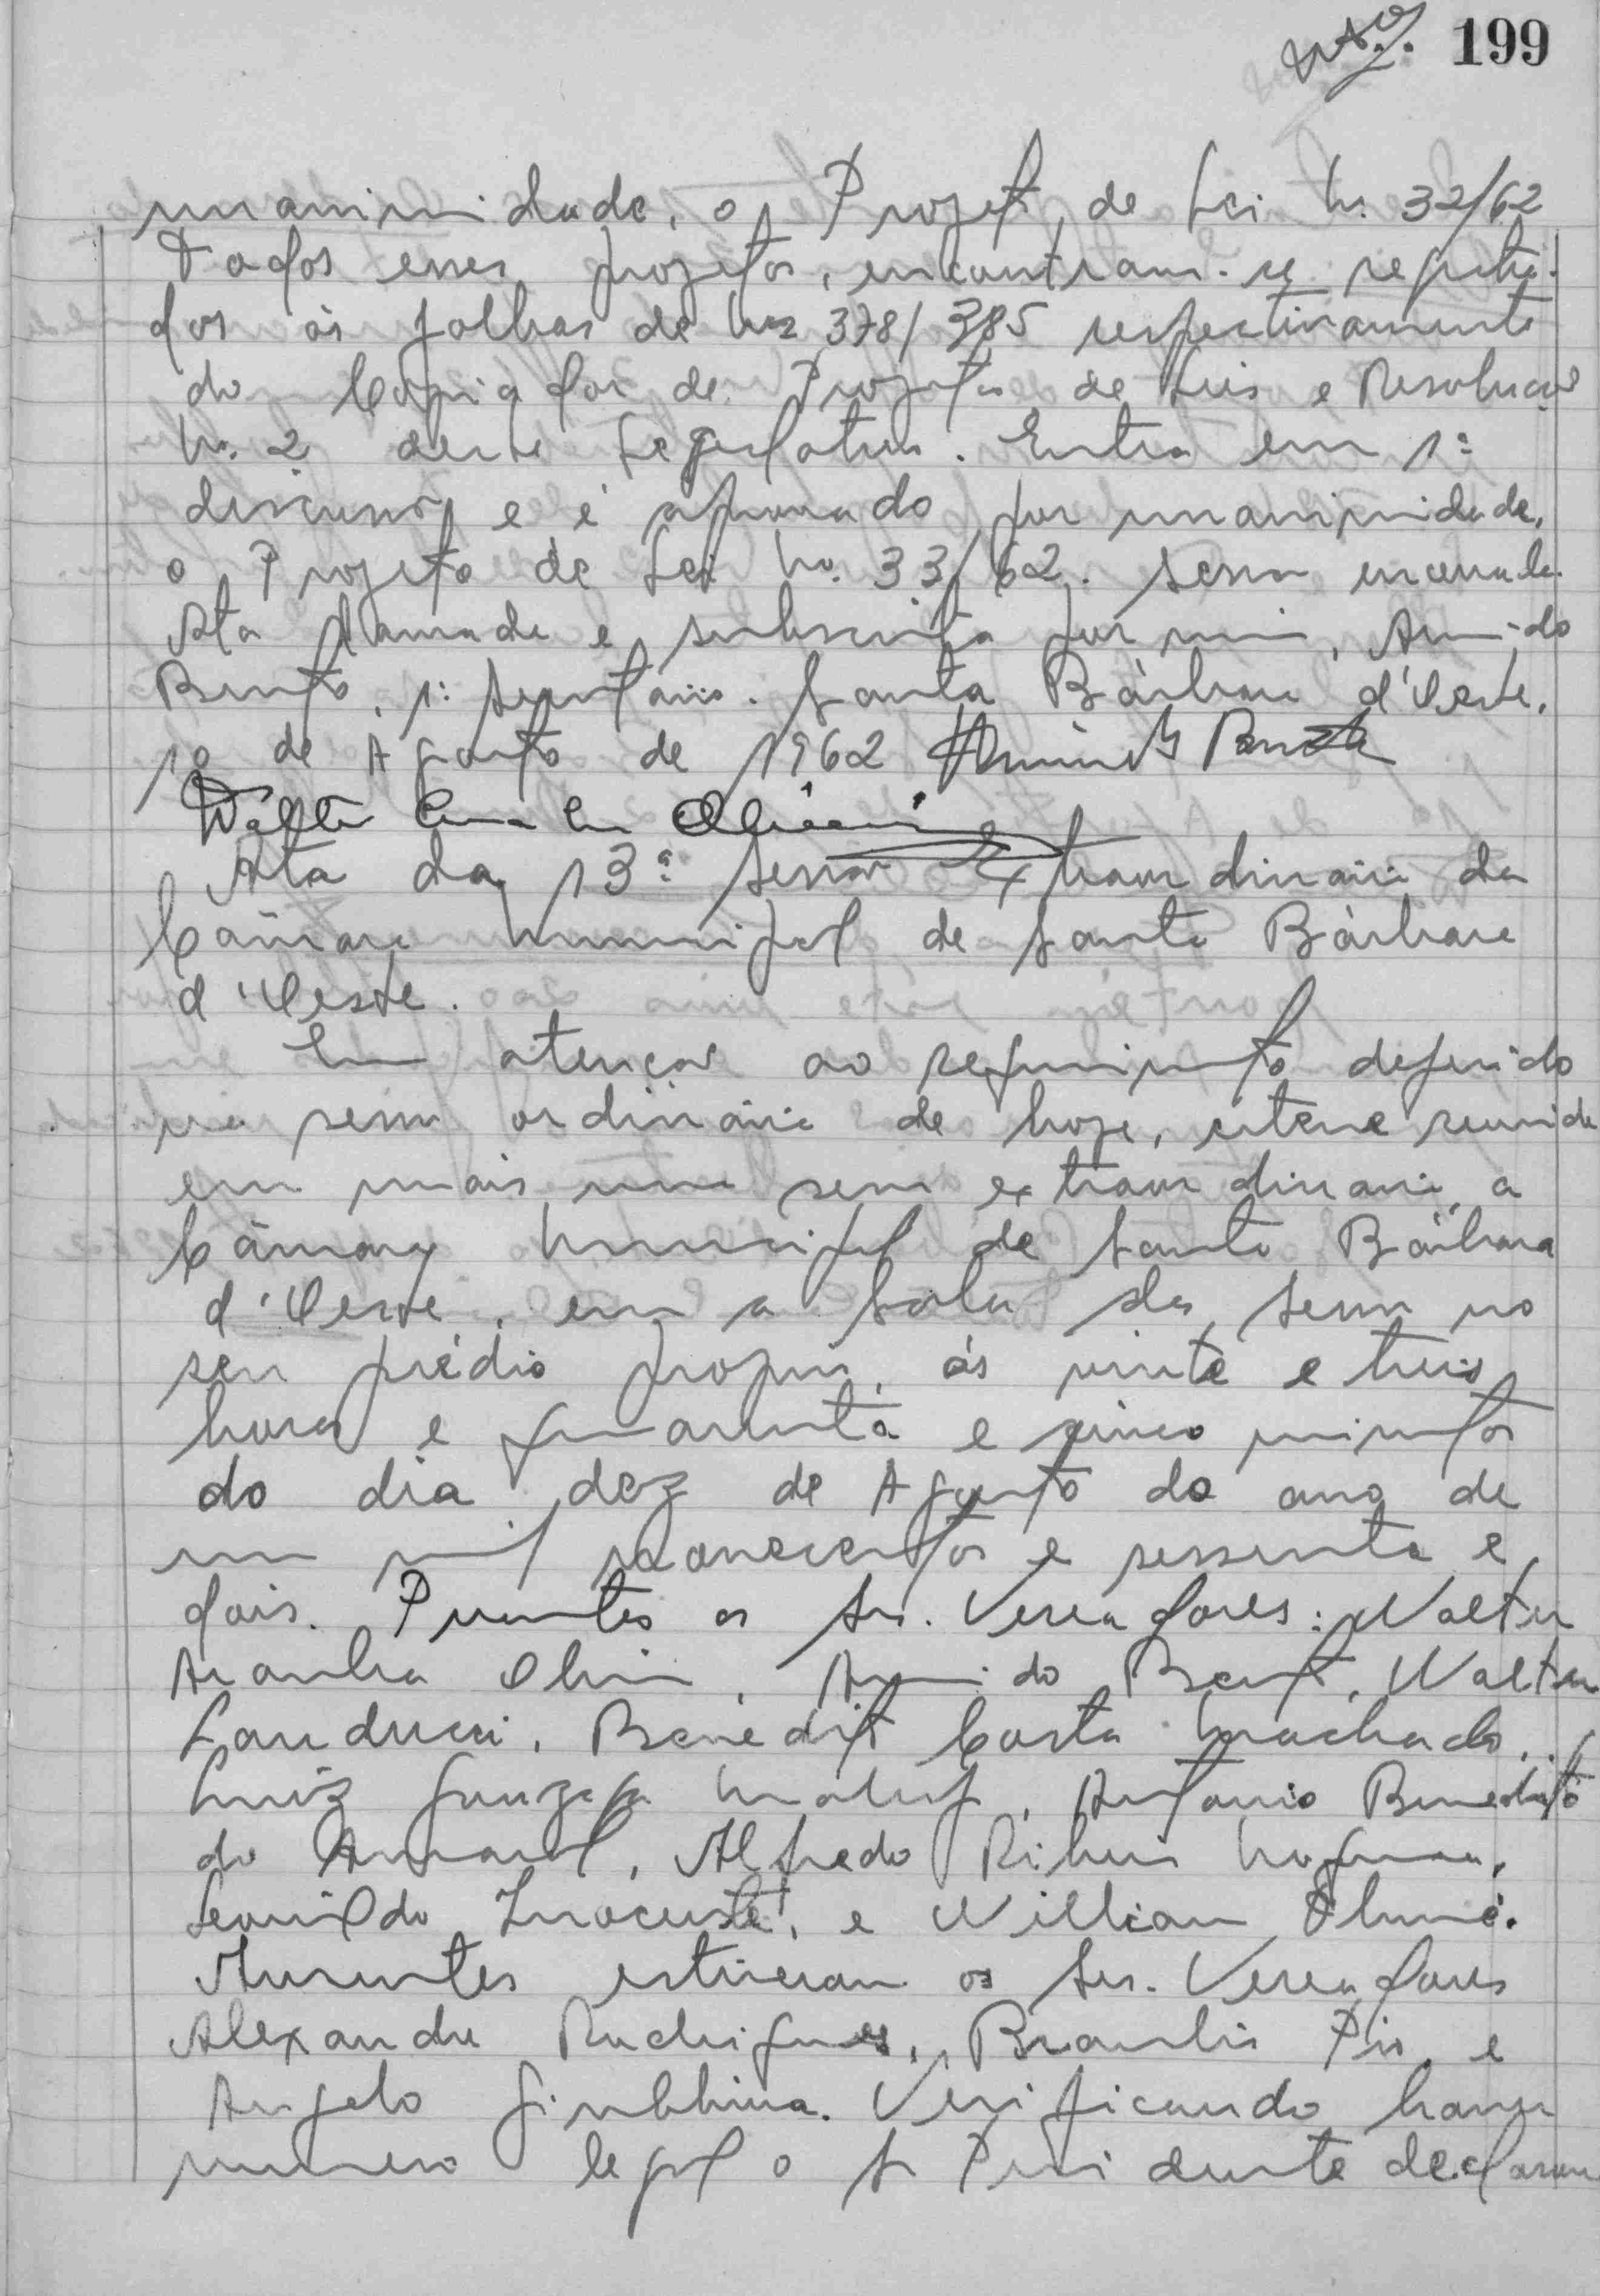 199
unanimidade, o Projeto de Lei no. 32/62
Todos esses projetos, encontram-se registra-
dos às folhas de nos 378/385 respectivamente
do Copiador de Projetos de Leis e Resolução
no. 2 desta Legislatura. Entra em 1ª
discussão e é aprovado por unanimidade,
o Projeto de Lei no. 33/62. Sessão encerrada.
Ata lavrada e subscrita por mim, Armindo
Bento, 1º Secretário. Santa Bárbara d'Oeste,
10 de Agosto de 1962
Ata da 13ª Sessão Extraordinária da
Câmara Municipal de Santa Bárbara
d'Oeste.
Em atenção ao requerimento deferido
na sessão ordinária de hoje, esteve reunida
em mais uma sessão extraordinária, a
Câmara Municipal de Santa Bárbara
d'Oeste, em a Sala das Sessões no
seu prédio próprio, às vinte e três
horas e quarenta e cinco minutos
do dia dez de Agosto do ano de
um mil novecentos e sessenta e
dois. Presentes os Srs. Vereadores: Walter
Aranha Oliveira, Armindo Bento, Walter
Landucci, Benedito Costa Machado,
Luiz Gonzaga Maluf, Antonio Benedito
do Amaral, Alfredo Ribeiro Nogueira,
Leonildo Inocente, e Willian
Ausentes estiveram os Srs. Vereadores
Alexandre Rodrigues, Braulio Pio, e
Angelo Giubbina. Verificando haver
numero legal o Sr Presidente declarou